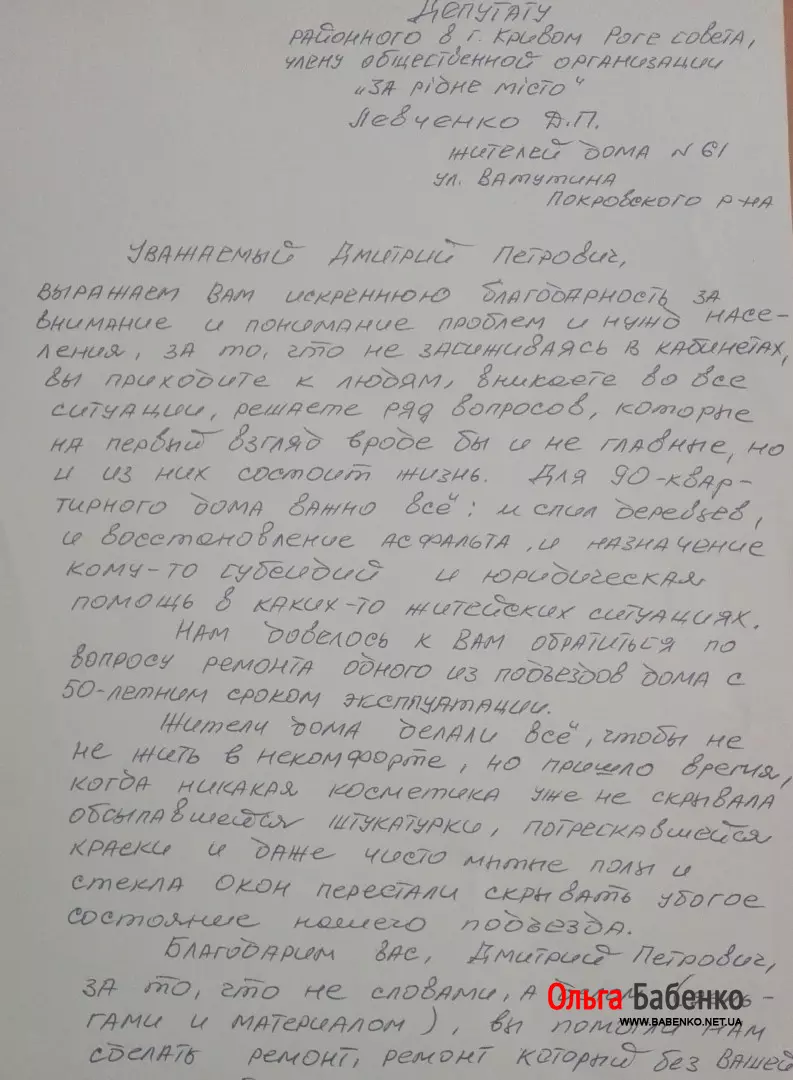 Депутату
районного в г. Кривом Роге совета,
члену общественной организации
„За рідне місто"
Левченко Д.П.
жителей дома №61
ул. Ватутина
Покровского р-на
Уважаемый Дмитрий Петрович,
выражаем Вам искреннюю благодарность за
внимание и понимание проблем и нужд насе-
ления, за то, что не засиживаясь в кабинетах,
вы приходите к людям, вникаете во все
ситуации, решаете ряд вопросов, которые
на первый взгляд вроде бы и не главные, но
и из них состоит жизнь. Для 90-квар-
тирного дома важно всё: и спил деревцев,
и восстановление асфальта, и назначение
кому-то субсидий и юридическая
помощь в каких-то житейских ситуациях.
Нам довелось к Вам обратиться по
вопросу ремонта одного из подъездов дома с
50-летним сроком эксплуатации.
Жители дома делали всё, чтобы не
не жить в некомфорте, но пришло время,
когда никакая косметика уже не скрывала
обсыпавшейся штукатурки, потрескавшейся
краски и даже чисто мытые полы и
стекла окон перестали скрывать убогое
состояние нашего подъезда.
Благодарим вас, Дмитрий Петрович,
за то, что не словами, а
Ольга Бабенко
www.babenko.net.ua
гами и материалом), вы помогли нам
сделать ремонт, ремонт который без Вашей